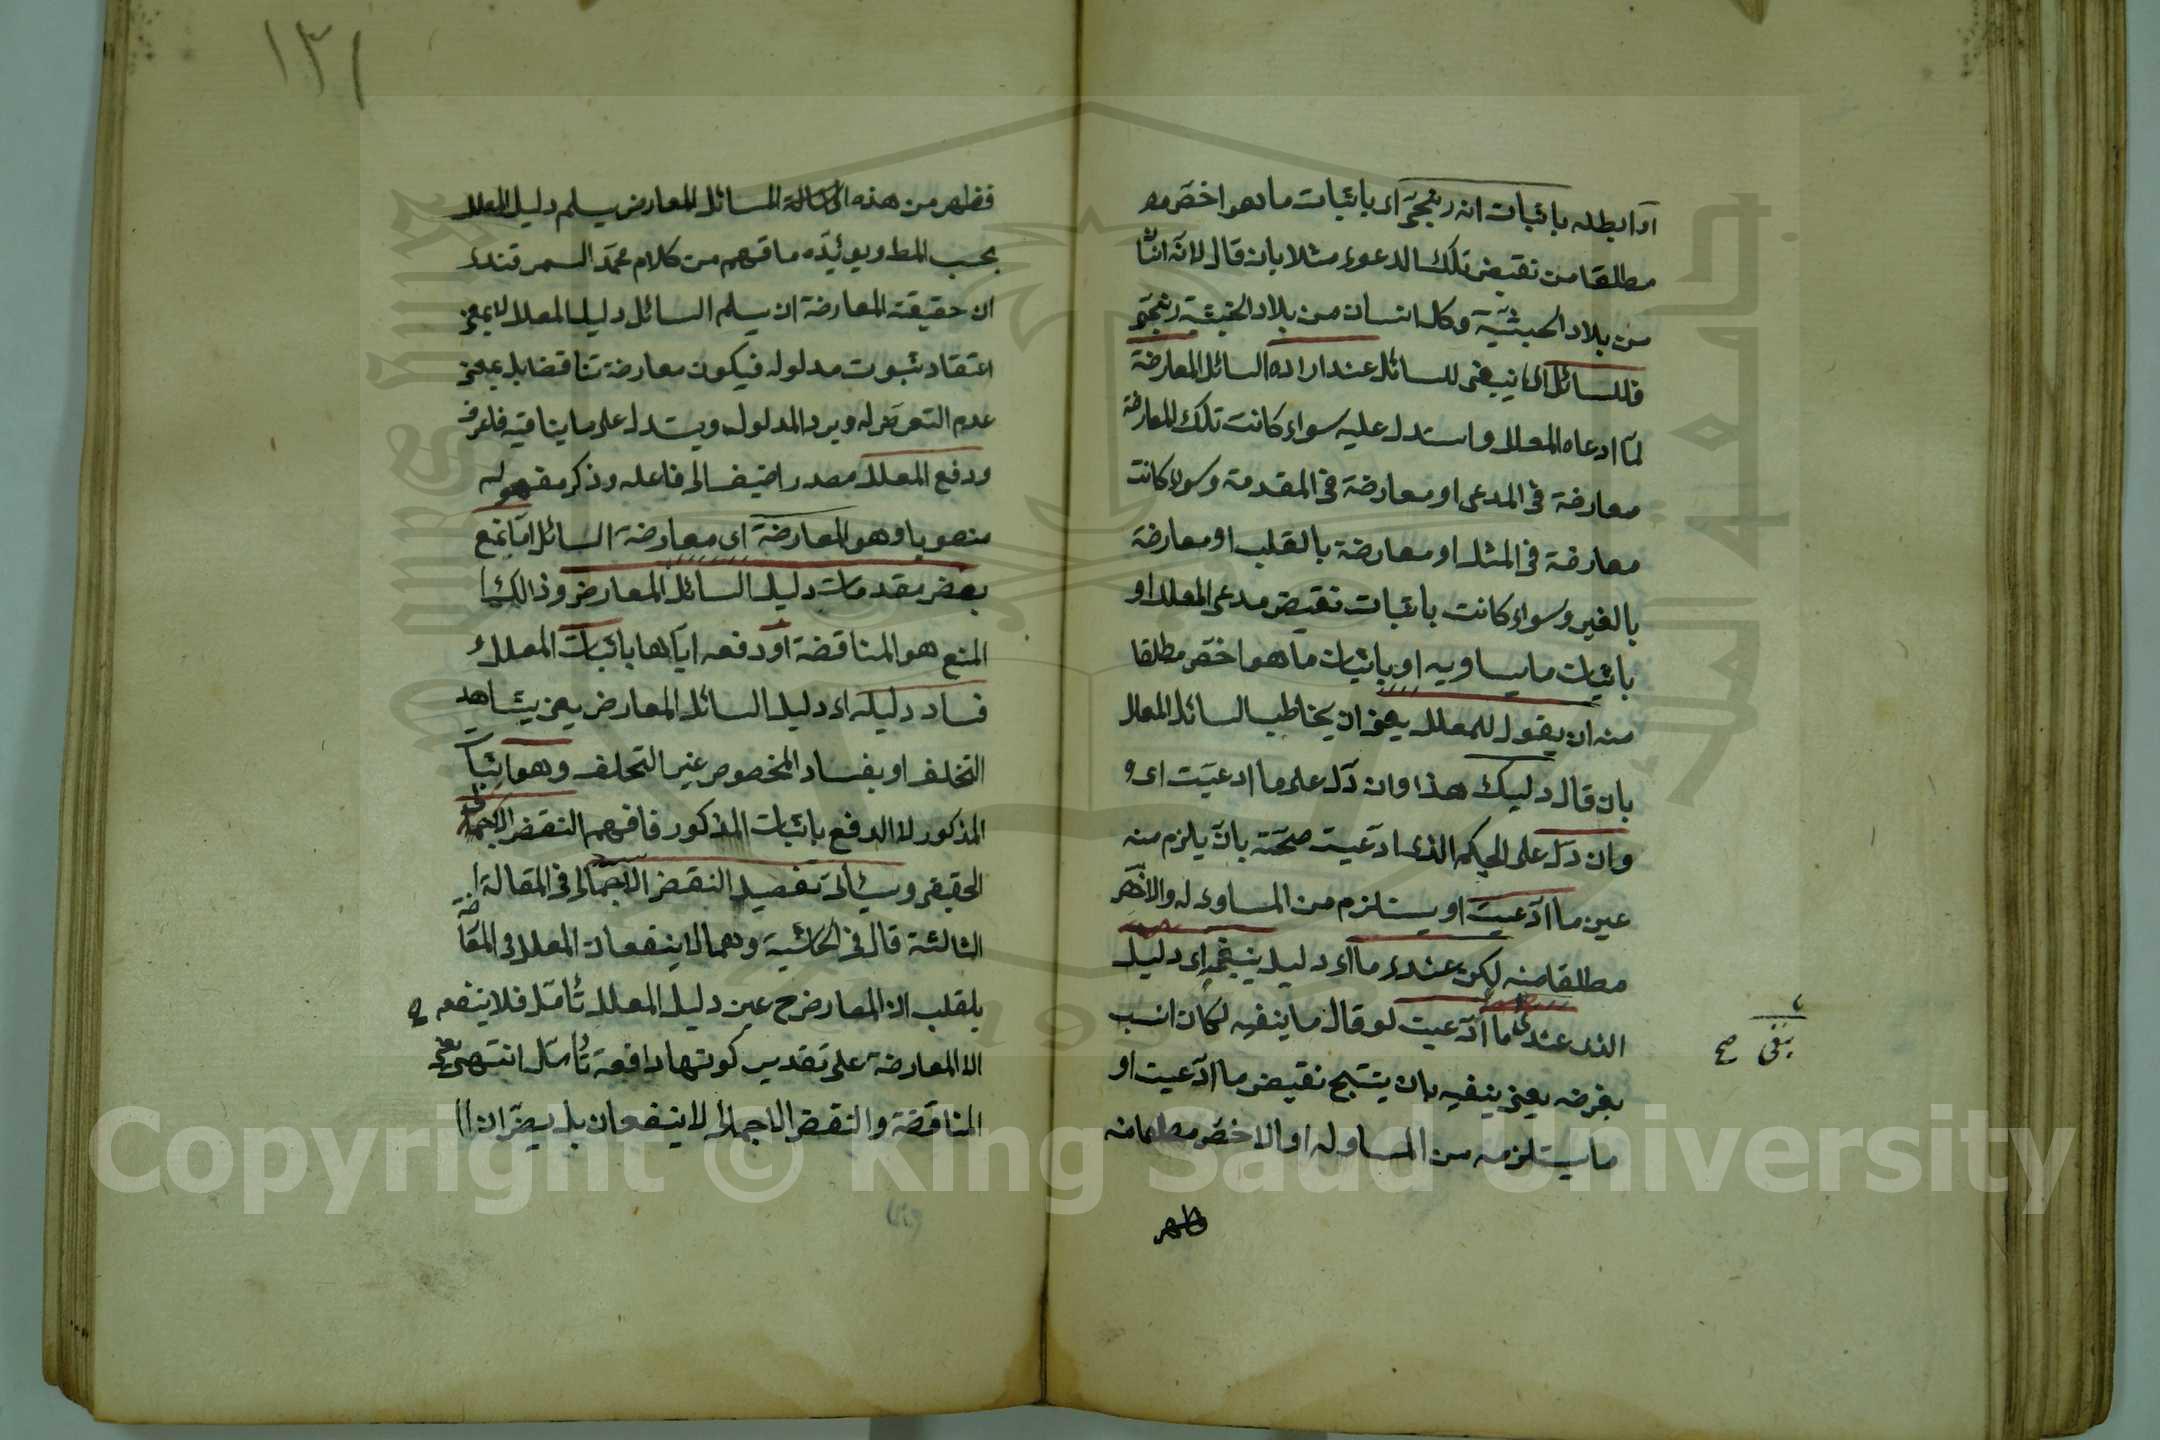 او ابطله باثبات انه زنجى اى باثبات ما هو اخص منه
مطلقا من نقيض تلك الدعوى مثلا بان قال لانه انسان
من بلاد الحبشية وكل انسان من بلاد الحبشة زنجى
فللسائل اى ينبغى للسائل عند ارادة السائل المعارضة
لما ادعاه المعلل واستدل عليه سواء كانت تلك المعارضة
معارضة فى المدعى او معارضة فى المقدمة وسواء كانت
معارضة فى المثل او معارضة بالقلب او معارضة
بالغير وسواء كانت باثبات نقيض مدعى المعلل او
باثبات ما يساويه او باثبات ما هو اخص مطلقا
منه ان يقول للمعلل يعنى ان يخاطب السائل المعلل
بان قال دليلك هذا وان دل على ما ادعيت اى و
وان دل على الحكم الذى ادعيت صحته بان يلزم منه
عين ما ادعيت او يستلزم من المساوى له والاخص
مطلقا منه لكن عندى ما اى دليل ينفيه اى دليل
الذى عندى ما ادعيت لو قال ما ينفيه لكان انسب
بغرضه يعنى ينفيه بان ينتج نقيض ما ادعيت او
ما يستلزمه من المساوى له او الاخص مطلقا منه
فظهر
ينفى صح
١٣١
فظهر من هذه ان السائل المعارض يسلم دليل المعلل
بحسب الط ويؤيده ما فهم من كلام محمد السمرقندى
ان حقيقة المعارضة ان يسلم السائل دليل المعلل لا بمعنى
اعتقاد ثبوت مدلوله فيكون معارضة تناقضا بل بمعنى
عدم التعرض له ويرد المدلول ويستدل على ما ينافيه فاعرف
ودفع المعلل مصدر اضيف الى فاعله وذكر مفعوله
منصوبا وهو المعارضة اى معارضة السائل اما بمنع
بعض مقدمات دليل السائل المعارض وذلك
المنع هو المناقضة او دفعه اياها باثبات المعلل
فساد دليله اى دليل السائل المعارض يعنى بشاهد
التخلف او بفساد المخصوص غير التخلف وهو اثبات
المذكور لا الدفع باثبات المذكور فافهم النقض الاجمالى
الحقيقى وسيأتى تفصيل النقض الاجمالى فى المقالة
الثالثة قال فى الحاشية وهما لا ينفعان المعلل فى المعارضة
بلقلب اذ المعارض ح عين دليل المعلل تأمل فلا ينفعه ح
الا المعارضة على تقدير كونها دافعة تأمل انتهى يعنى
المناقضة والنقض الاجمالى لا ينفعان بل يضران